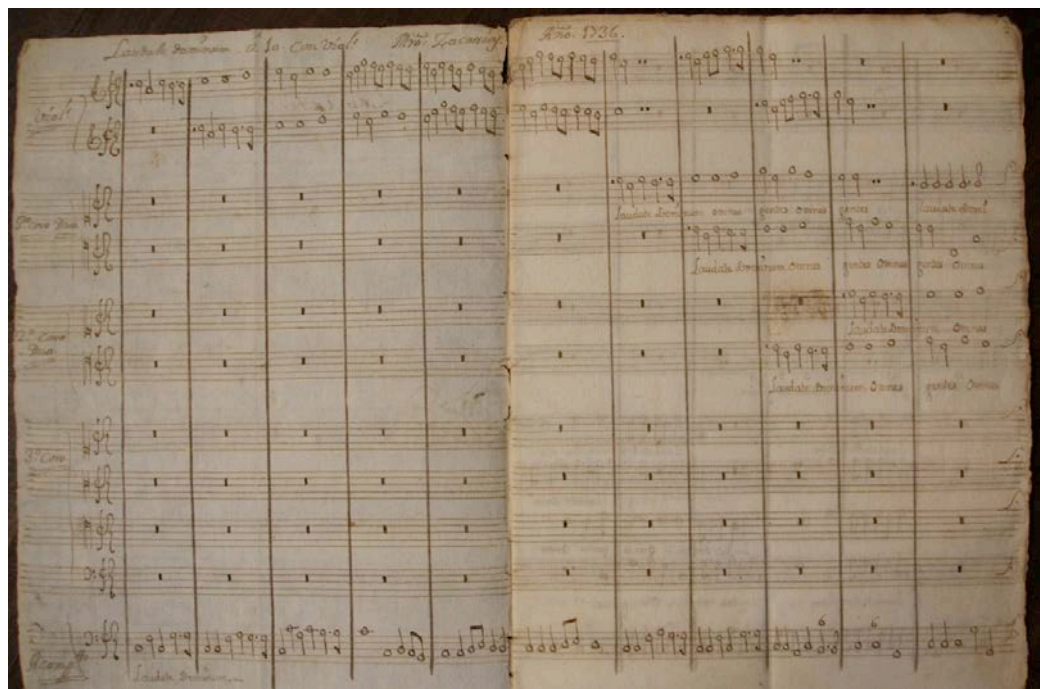 Laudate Dominum â 10. con Viol.s Mro. Año. 1736.
Viol.s
1.º Coro
2.º Coro
3.º Coro
Acomp.to
Laudate Dominum omnes gentes omnes gentes laudate Domi
Laudate Dominum omnes gentes omnes gentes omnes
Laudate Dominum omnes
Laudate Dominum omnes gentes omnes
6 6
Laudate Dominum